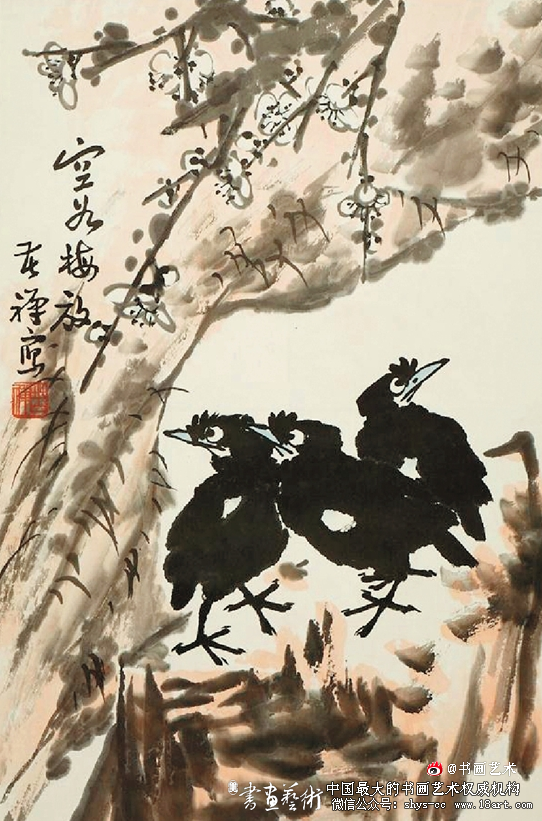 空谷梅放
苦禪寫
@书画艺术
書畫藝術
中国最大的书画艺术权威机构
微信公众号：shys-cc www.18art.com